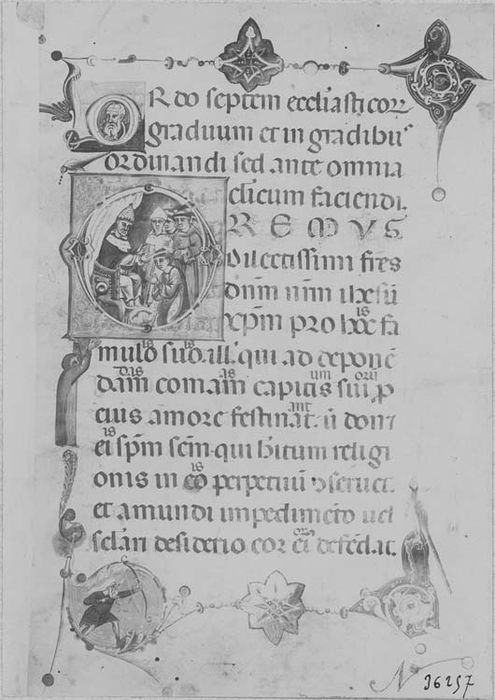 ORdo septem eccl̄iasticorꝝ
graduum et in gradibus
ordinandi sed ante omnia
clicum faciendi.
OREMUS
Dilectissimi fr̄es
dn̄m nr̄m ih̄esū
xp̄m pro hoc fa
mulo suo. ill. qui ad deponē
dam comam capitis sui p
eius amore festinat. ut donet
ei sp̄m sc̄m qui habitum religi
onis in eo perpetuū ꝯseruet.
et a mundi impedimēto uel
sc̄lari desiderio cor ei defēdat.
N 36257